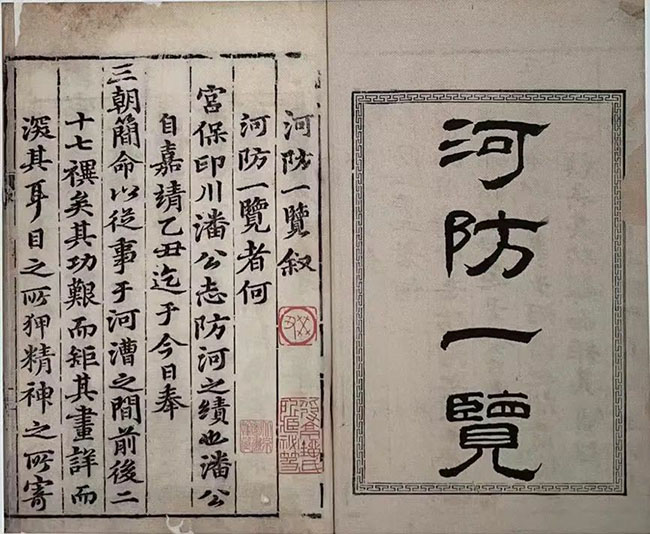 河防一覽
河防一覽叙
河防一覽者何
宮保印川潘公志防河之績也潘公
自嘉靖乙丑迄于今日奉
三朝簡命以從事于河漕之間前後二
十七禩矣其功艱而矩其畫詳而
深其耳目之所狎精神之所寄